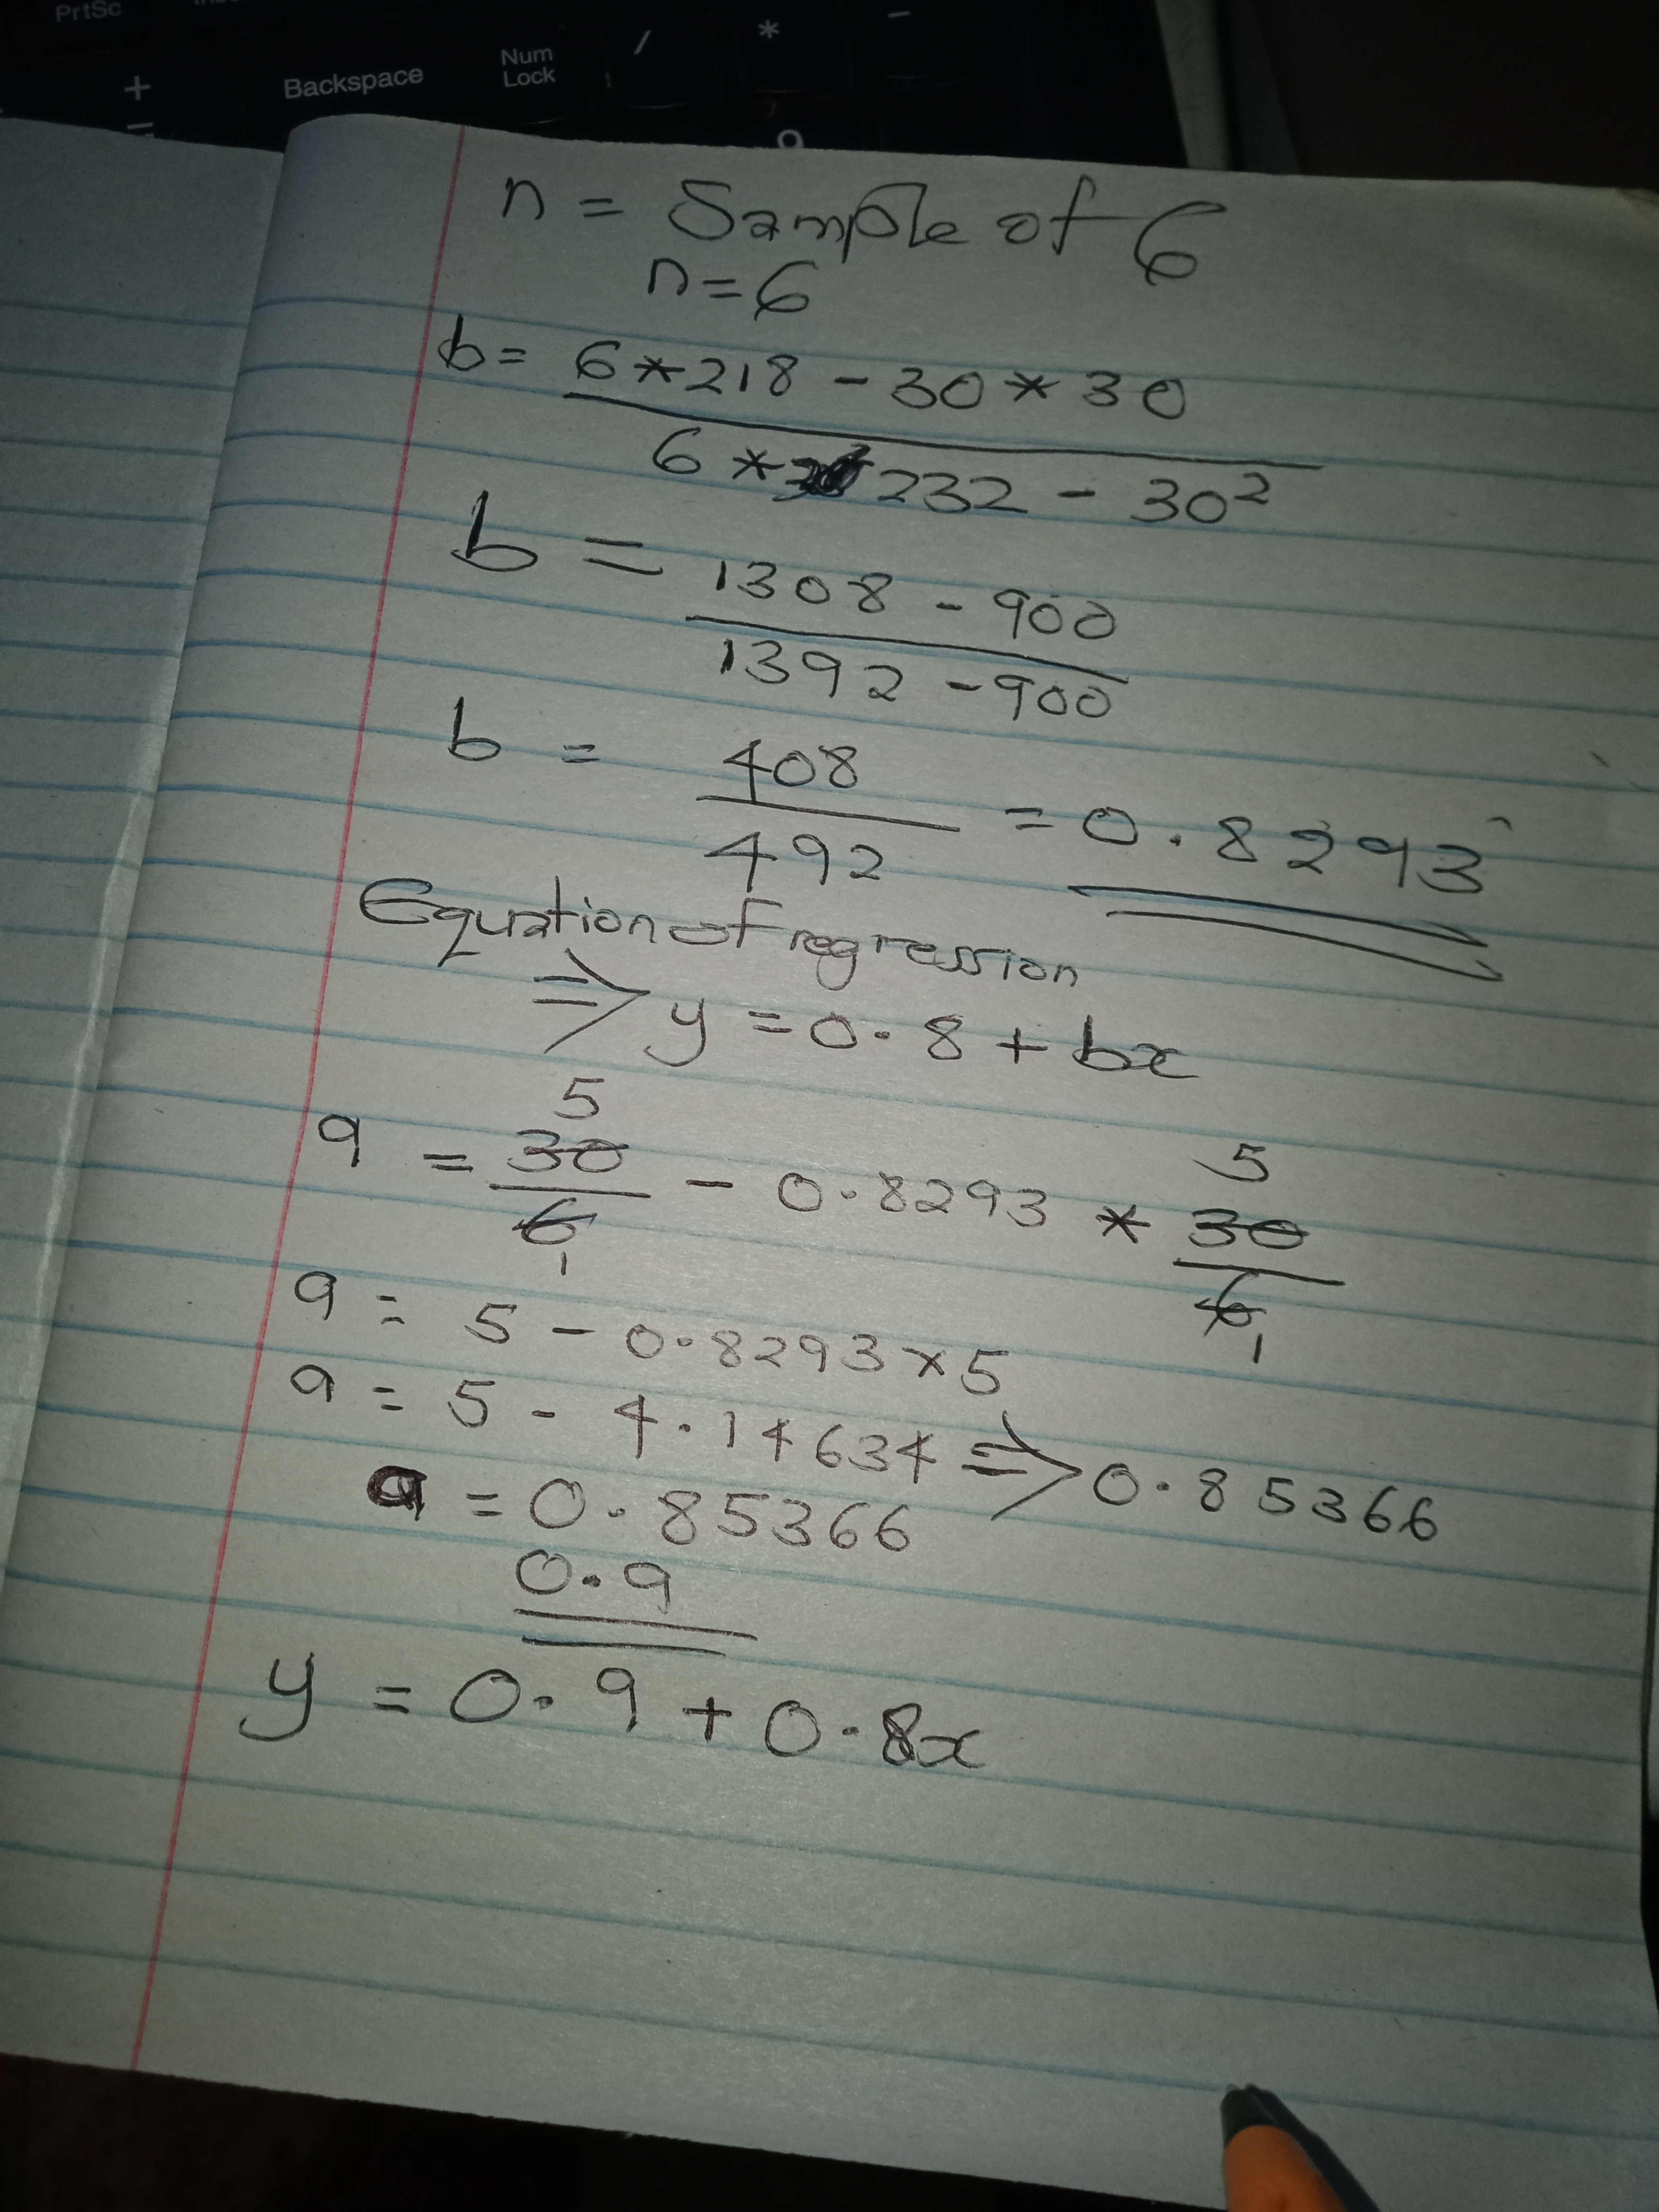 PrtSc
+ Backspace Num Lock / * -
=
n = Sample of 6
n = 6
b = 6 * 218 - 30 * 30
6 * 232 - 30²
b = 1308 - 900
1392 - 900
b = 408 = 0.8293
492
Equation of regression
⇒ y = 0.8 + bx
5 5
a = 30 - 0.8293 * 30
6 6
1 1
a = 5 - 0.8293 × 5
a = 5 - 4.14634 ⇒ 0.85366
a = 0.85366
0.9
y = 0.9 + 0.8x